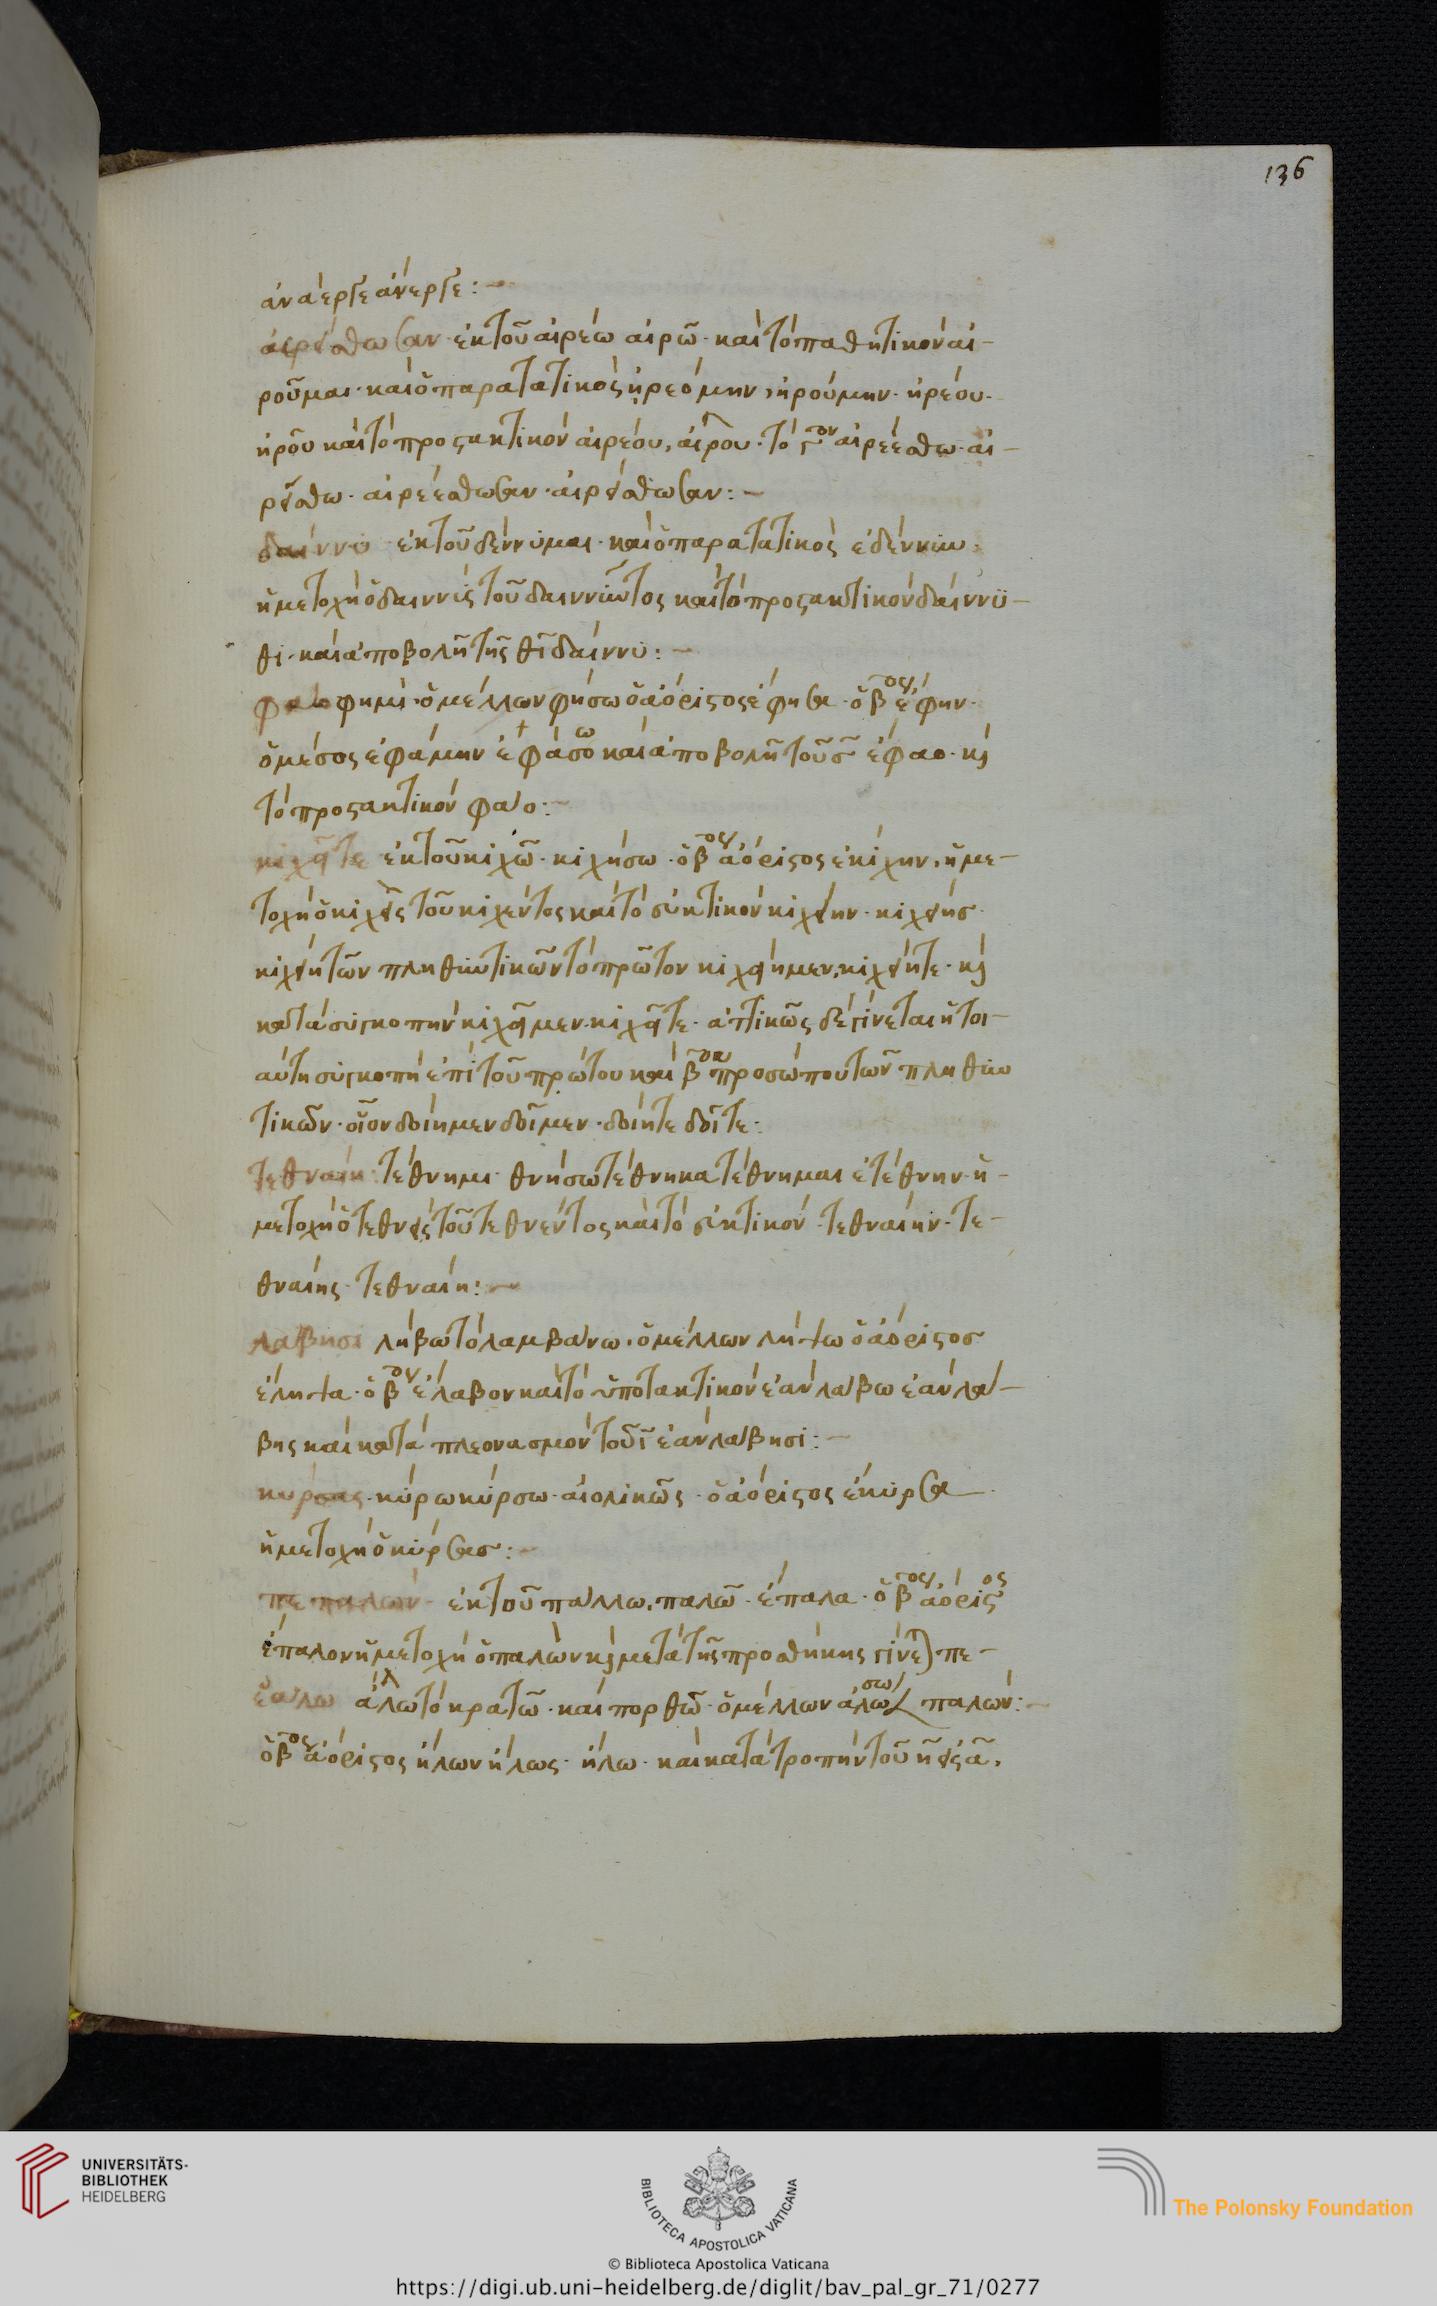 136
ἀναέρσε ἀνέρσε:
αἱρείσθωσαν· ἐκ τοῦ αἱρέω αἱρῶ· καὶ τὸ παθητικὸν αἱ-
ροῦμαι· καὶ ὁ παρατατικὸς ᾑρεόμην, ᾑρούμην· ᾑρέου·
ᾑροῦ καὶ τὸ προςακτικὸν αἱρέου, αἱροῦ· τὸ γ̅ον αἱρεέσθω· αἱ-
ρείσθω· αἱρεέσθωσαν· αἱρείσθωσαν:
δαίννυ ἐκ τοῦ δέννυμαι· καὶ ὁ παρατατικὸς ἐδέννυν·
ἡ μετοχὴ ὁ δαιννὺς τοῦ δαιννύντος καὶ τὸ προςακτικὸν δαίννυ-
θι· καὶ ἀποβολῆ τῆς θι δαίννυ:
φάο φημὶ· ὁ μέλλων φήσω ὁ ἀόριςος ἔφησα· ὁ β̅ος ἔφην·
ὁ μέσος ἐφάμην ἐφάσο καὶ ἀποβολῆ τοῦ σ̅ ἔφαο· κ
τὸ προςακτικὸν φάο:
κιχεῖτε ἐκ τοῦ κιχῶ· κιχήσω· ὁ β̅ος ἀόριςος ἐκίχην, ἡ με-
τοχὴ ὁ κιχεὶς τοῦ κιχέντος καὶ τὸ εὐκτικὸν κιχείην· κιχείης·
κιχείη τῶν πληθυντικῶν τὸ πρῶτον κιχείημεν, κιχείητε· κ
κατὰ συγκοπὴν κιχεῖμεν· κιχεῖτε· ἀττικῶς δὲ γίνεται ἡ τοι-
αύτη συγκοπὴ ἐπὶ τοῦ πρώτου καὶ β̅ου προσώπου τῶν πληθυν
τικῶν· οἷον δοίημεν δοῖμεν· δοίητε δοῖτε·
τεθναίη τέθνημι· θνήσω τέθνηκα τέθνημαι ἐτέθνην· ἡ-
μετοχὴ ὁ τεθνεὶς τοῦ τεθνέντος καὶ τὸ εὐκτικὸν· τεθναίην· τε-
θναίης· τεθναίη:
λάβησι λήβω τὸ λαμβάνω· ὁ μέλλων λήψω ὁ ἀόριςος
ἔληψα· ὁ β̅ον ἔλαβον καὶ τὸ ὑποτακτικὸν ἐὰν λάβω ἐὰν λά-
βης καὶ κατὰ πλεονασμὸν τοῦ ι̅ ἐὰν λάβησι:
κύρσας· κύρω κύρσω· αἰολικῶς· ὁ ἀόριςος ἔκυρσα
ἡ μετοχὴ ὁ κύρσας:
πεπαλών· ἐκ τοῦ πάλλω, παλῶ· ἔπαλα· ὁ β̅ος ἀόριςος
ἔπαλον ἡ μετοχὴ ὁ παλὼν κ μετὰ τῆς προσθήκης γίνετ πε-
ἑάλω ἁλῶ τὸ κρατῶ· καὶ πορθῶ· ὁ μέλλων ἁλώσω παλών:
ὁ β̅ος ἀόριςος ἥλων ἥλως· ἥλω· καὶ κατὰ τροπὴν τοῦ η̅ εἰς α̅,
UNIVERSITÄTS-
BIBLIOTHEK
HEIDELBERG
BIBLIOTECA APOSTOLICA VATICANA
The Polonsky Foundation
© Biblioteca Apostolica Vaticana
https://digi.ub.uni-heidelberg.de/diglit/bav_pal_gr_71/0277